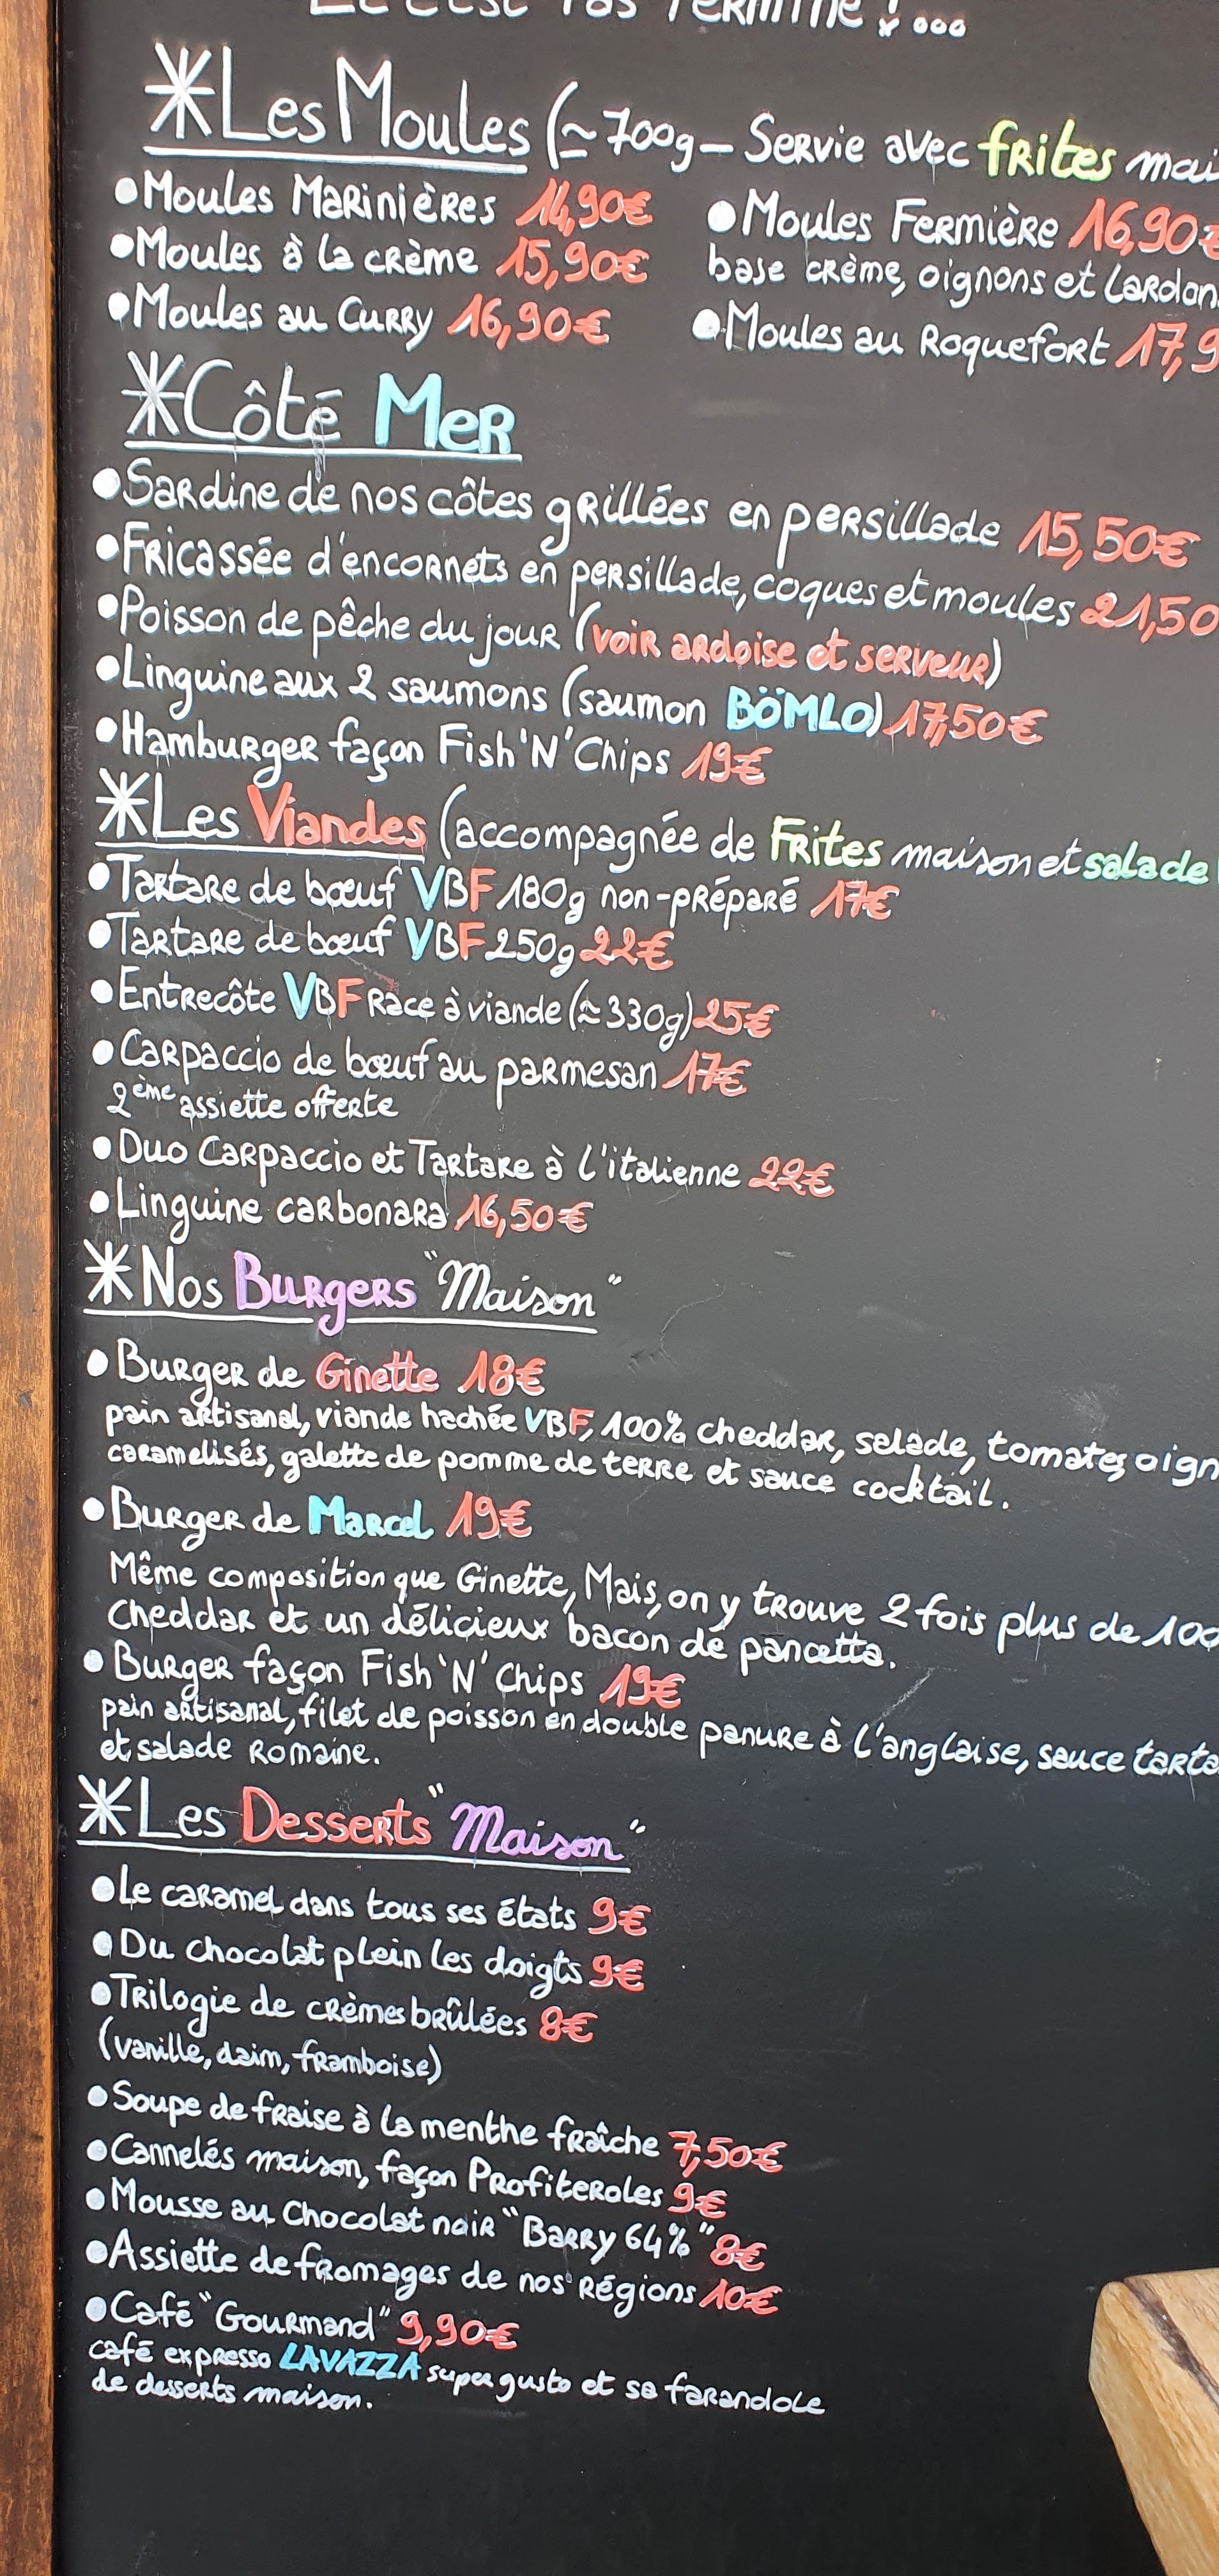 Et c'est Pas Terminé !...
*Les Moules (≃700g – Servie avec frites
•Moules Marinières 14,90€
•Moules à la crème 15,90€
•Moules au Curry 16,90€
•Moules Fermière 16,90€
base crème, oignons et Lardon
•Moules au Roquefort 17,9
*Côté Mer
•Sardine de nos côtes grillées en persillade 15,50€
•Fricassée d'encornets en persillade, coques et moules 21,50
•Poisson de pêche du jour (voir ardoise et serveur)
•Linguine aux 2 saumons (saumon BÖMLO) 17,50€
•Hamburger façon Fish'N'Chips 19€
*Les Viandes (accompagnée de Frites maison et salade
•Tartare de bœuf VBF 180g non-préparé 17€
•Tartare de bœuf VBF 250g 22€
•Entrecôte VBF Race à viande (≃330g) 25€
•Carpaccio de bœuf au parmesan 17€
2ème assiette offerte
•Duo Carpaccio et Tartare à l'italienne 22€
•Linguine carbonara 16,50€
*Nos Burgers "Maison"
•Burger de Ginette 18€
pain artisanal, viande hachée VBF, 100% cheddar, salade, tomates, oign
caramelisés, galette de pomme de terre et sauce cocktail.
•Burger de Marcel 19€
Même composition que Ginette, Mais, on y trouve 2 fois plus de 100
Cheddar et un délicieux bacon de pancetta.
•Burger façon Fish'N'Chips 19€
pain artisanal, filet de poisson en double panure à l'anglaise, sauce tarta
et salade Romaine.
*Les Desserts "Maison"
•Le caramel dans tous ses états 9€
•Du chocolat plein les doigts 9€
•Trilogie de crèmes brûlées 8€
(vanille, daim, framboise)
•Soupe de fraise à la menthe fraîche 7,50€
•Cannelés maison, façon Profiteroles 9€
•Mousse au Chocolat noir "Barry 64%" 8€
•Assiette de fromages de nos Régions 10€
•Café "Gourmand" 9,90€
café expresso LAVAZZA super gusto et sa farandole
de desserts maison.